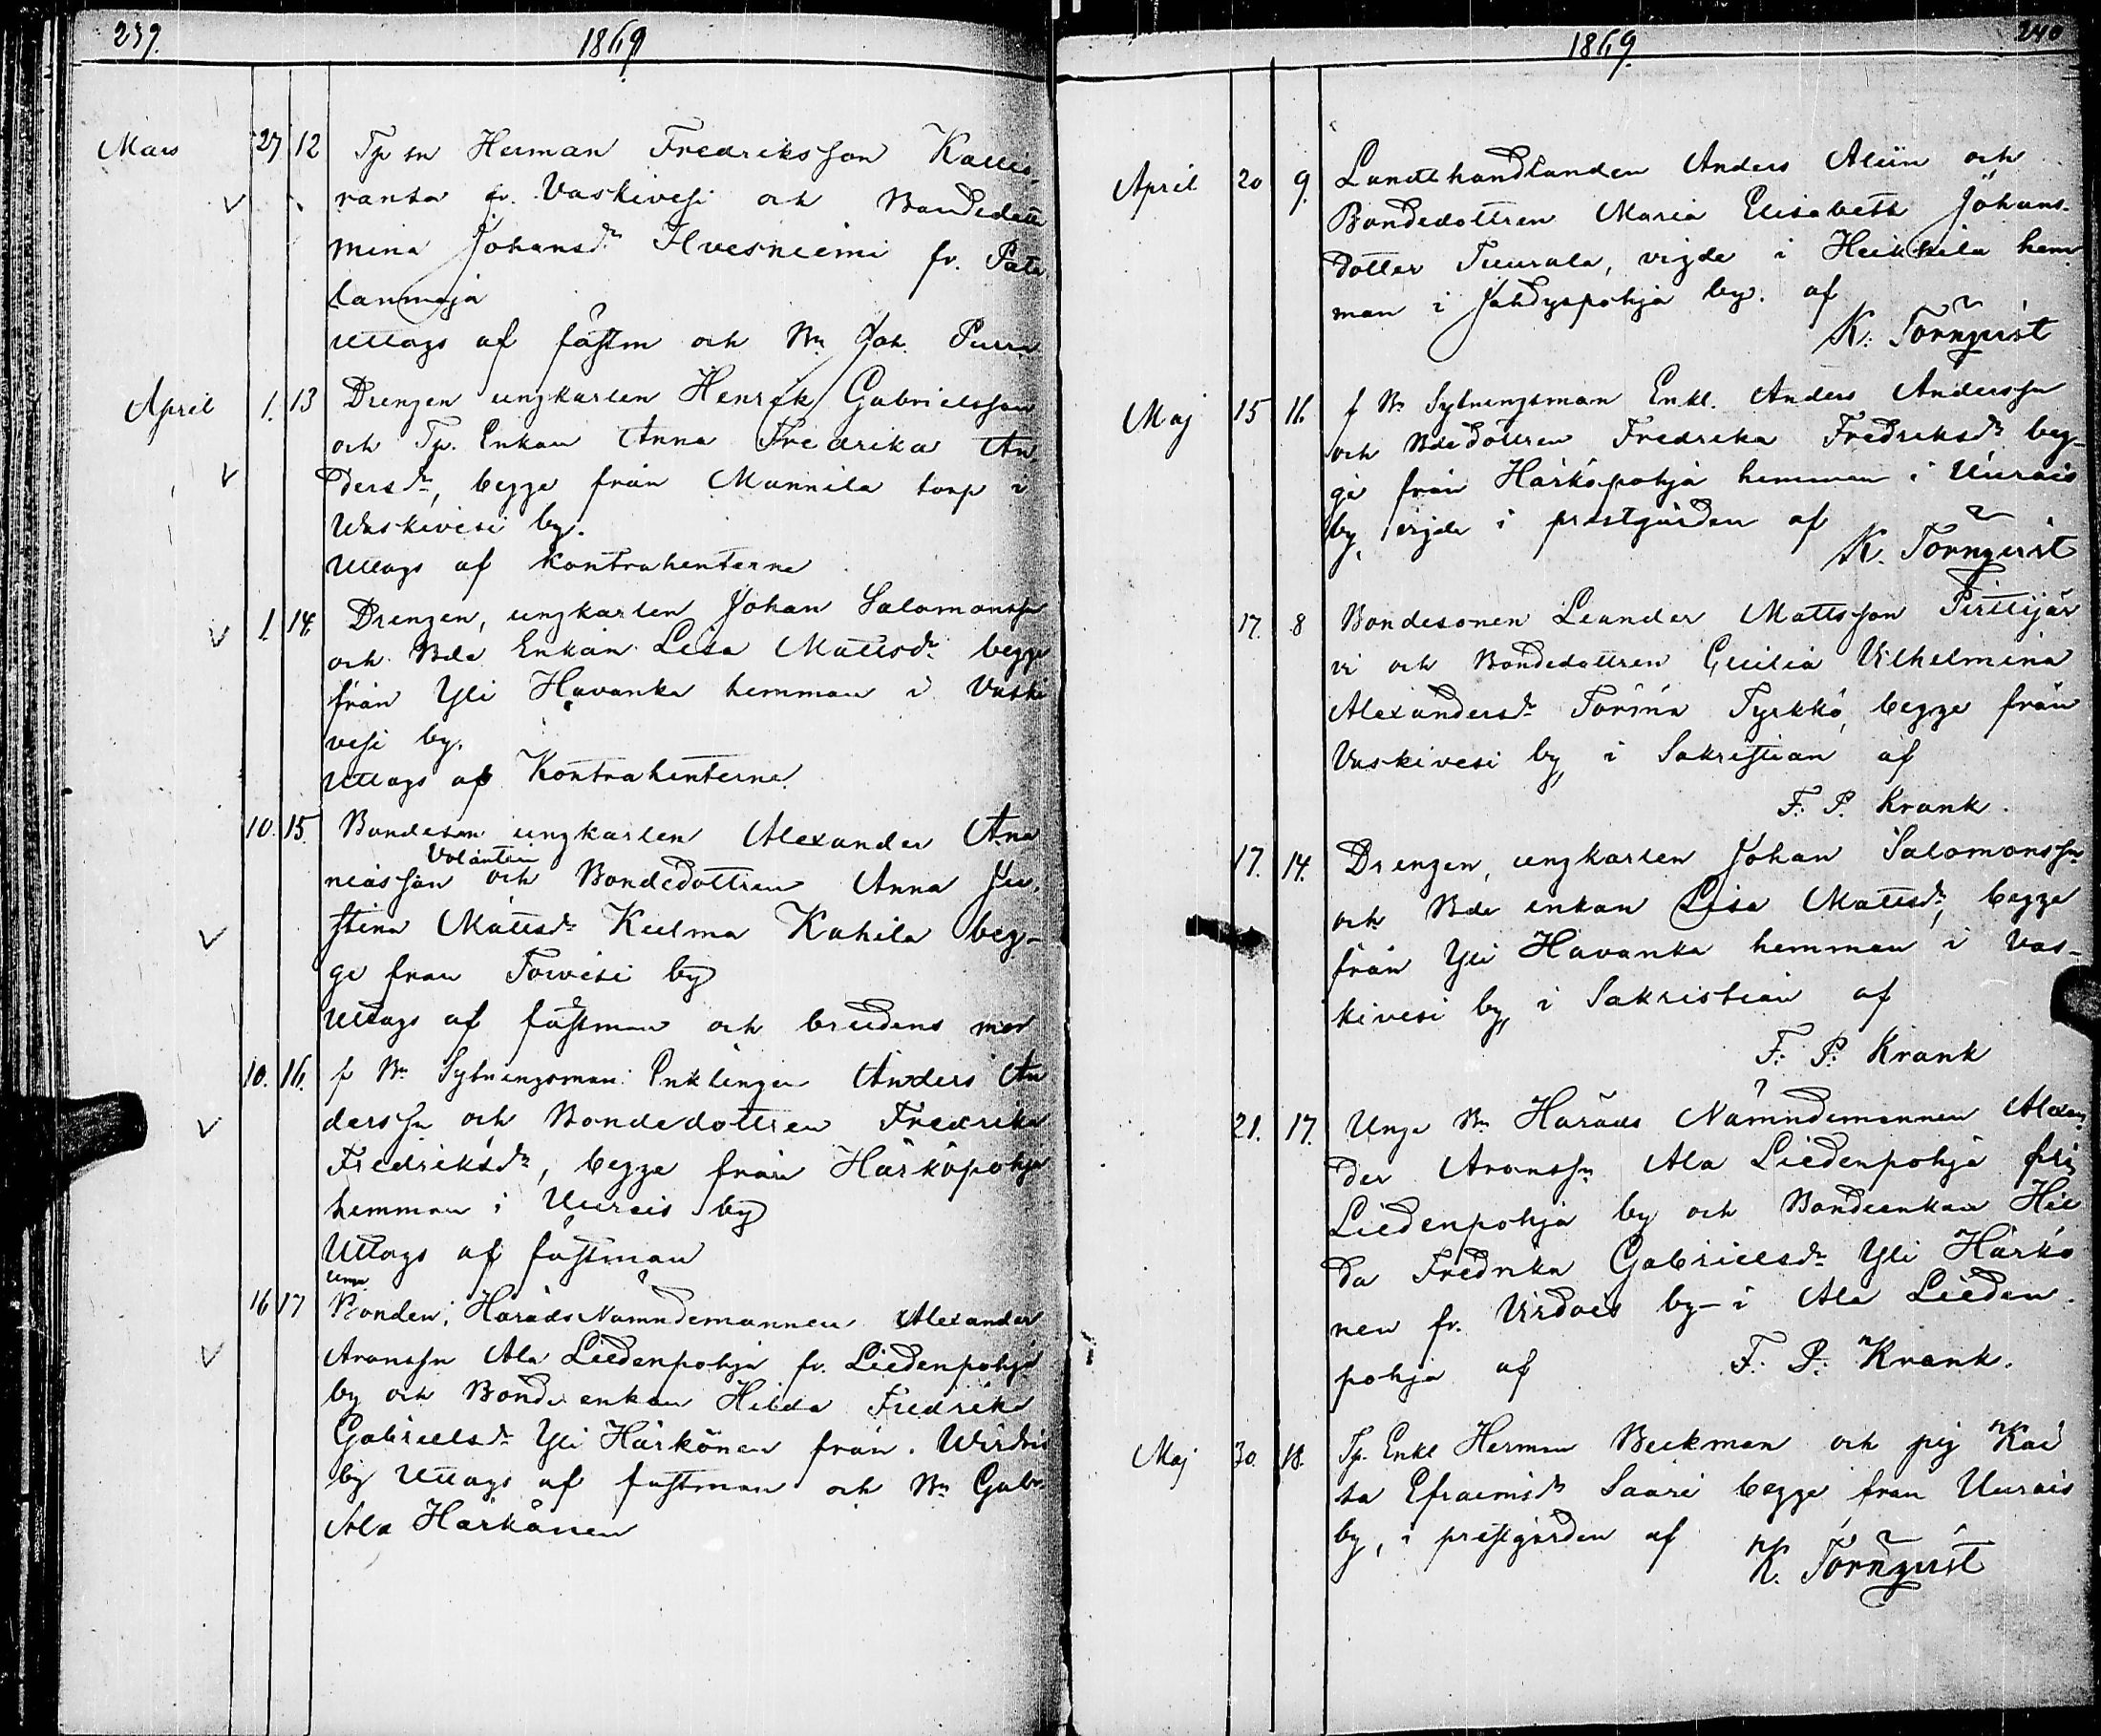 239.
1869
Mars 27 12 Tp sn Herman Fredriksson Kallis-
ranta fr. Vaskivesi och Bondedottr
Mina Johansdr Ilvesniemi fr. Pata
lanmaja
Uttogs af fästm och Bn Joh. Purra
April 1. 13 Drengen ungkarlen Henrik Gabrielsson
och Tp. Enkan Anna Fredrika An-
dersdr, begge från Mannila torp i
Waskivesi by.
Uttogs af kontrahenterne
1. 14. Drengen, ungkarlen Johan Salomonssn
och Bde Enkan Lisa Mattsdr begge
från Yli Havanka hemman i Vaski
vesi by.
Uttogs af Kontrahenterne.
10. 15. Bondeson ungkarlen Alexander Ana
Volantin
niasson och Bondedottren Anna Ju-
stina Mattsdr Kulma Kahila beg-
ge från Toivesi by
Uttogs af fästman och brudens mor
10. 16. f Bn Sytningsman Enklingen Anders An
derssn och Bondedottren Fredrika
Fredriksdr, begge från Härköpohja
hemman i Uurais by
Uttogs af fästman
Unge
16 17 Bonden, Härads Nämndemannen Alexander
Aronssn Ala Liedenpohja fr. Liedenpohja
by och Bonde enkan Hilda Fredrika
Gabrielsdr Yli Härkönen från Wirdois
by Uttogs af fästman och Bn Gabr.
Ala Härkönen
1869.
240
April 20 9. Landthandlanden Anders Alün och
Bondedottren Maria Elisabeth Johans-
dotter Tuurala, vigde i Heikkilä hem
man i Jähdyspohja by. af
K. Törnqvist
Maj 15 16. f Bn Sytningsman Enkl. Anders Anderssn
och Bdedottren Fredrika Fredriksdr beg-
ge från Härköpohja hemman i Uurais
by, vigde i prestgården af
K. Törnqvist
17. 8 Bondesonen Leander Mattsson Pirttijär
vi och Bondedottren Cecilia Vilhelmina
Alexandersdr Törmä Tyrkkö, begge från
Vaskivesi by, i Sakristian af
F. P. Krank.
17. 14. Drengen, ungkarlen Johan Salomonssn
och Bde enkan Lisa Mattsdr, begge
från Yli Havanka hemman i Vas-
kivesi by, i Sakristian af
F. P. Krank
21. 17. Unge Bn Härads Nämndemannen Alexan
der Aronssn Ala Liedenpohja från
Liedenpohja by och Bondeenkan Hil
da Fredrika Gabrielsdr Yli Härkö
nen fr. Virdois by - i Ala Lieden-
pohja af F. P. Krank.
Maj 30. 18. Tp. Enkl Herman Beckman och pig Kai
sa Efraimsdr Saari begge från Uurais
by, i prestgården af
K. Törnqvist